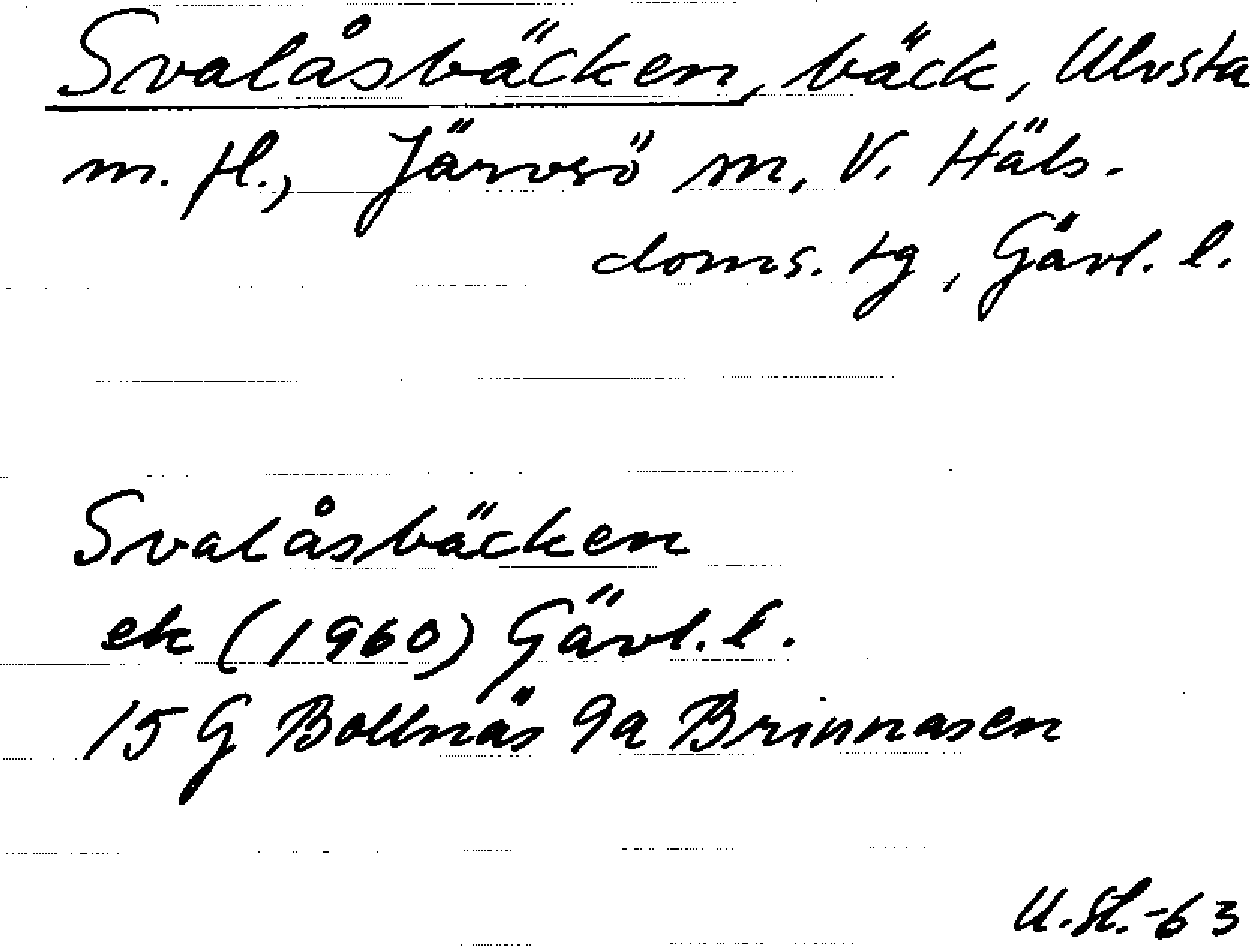 Svalåsbäcken, bäck, Ulvsta
m. fl., Järvsö sn, V. Häls.
doms. tg, Gävl. l.
Svalåsbäcken
ek (1960) Gävl. l.
15 G Bollnäs 9a Brinnasen
U. St. -63